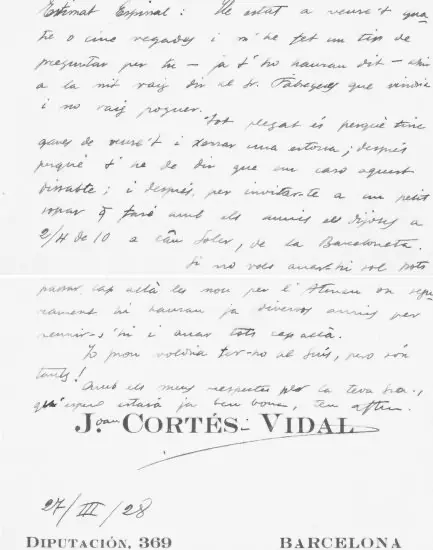 Estimat Espinal: He estat a veure't qua-
tre o cinc vegades i m'he fet un tip de
preguntar per tu – ja t'ho hauran dit – ahir
a la nit vaig dir al Sr. Fàbregues que vindria
i no vaig poguer.
Tot plegat és perquè tinc
ganes de veure't i xerrar una estona; després
perquè t'he de dir que em caso aquest
dissabte; i després, per invitar-te a un petit
sopar q faré amb els amics el dijous a
2/4 de 10 a càn Soler, de la Barceloneta.
Si no vols anar-hi sol pots
passar cap allà les nou per l'Ateneu on segu-
rament hi hauran ja diversos amics per
reunir-s'hi i anar tots cap allà.
Jo prou voldria fer-ho al Suís, pero són
tants!
Amb els meus respectes per la teva Sra.,
que espero estarà ja ben bona, teu aftm.
Joan CORTÉS-VIDAL
27/III/28
DIPUTACIÓN, 369 BARCELONA